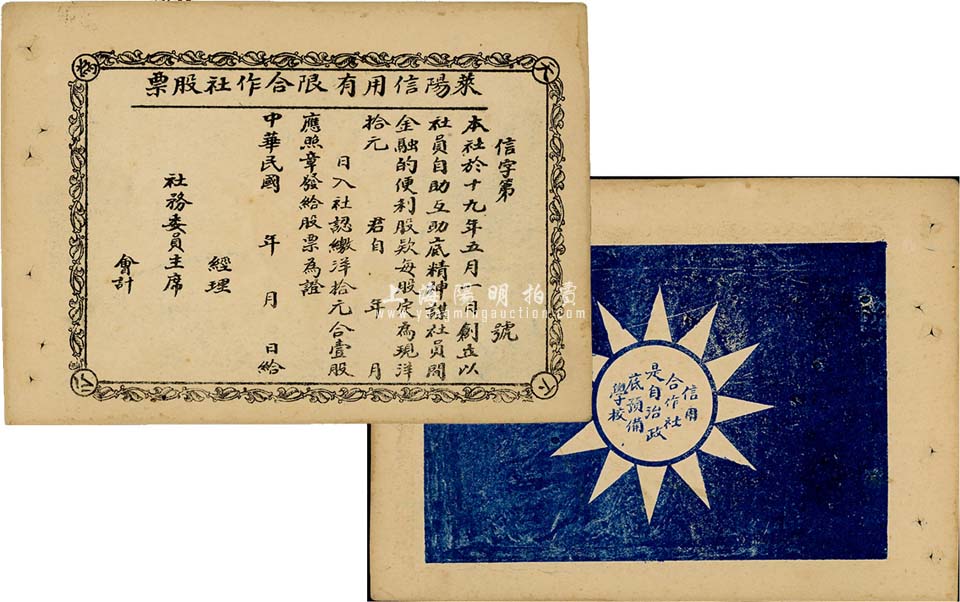 萊陽信用有限合作社股票
信字第 號
本社於十九年五月一日創立以
社員自助互助底精神謀社員間
金融的便利股款每股定為現洋
拾元 君自 年 月
日入社認繳洋拾元合壹股
應照章發給股票為證
中華民國 年 月 日給
經理
社務委員主席
會計
信用
合作社
是自治政
底預備
學校
上海陽明拍賣
www.yangmingauction.com